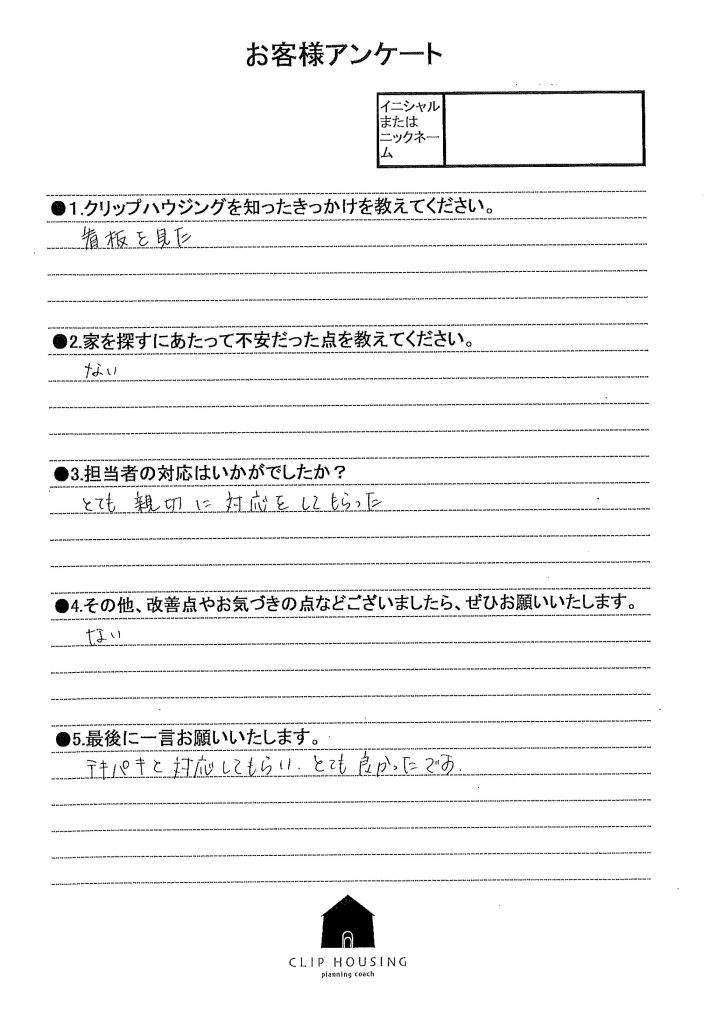 お客様アンケート
イニシャル
または
ニックネー
ム
●1.クリップハウジングを知ったきっかけを教えてください。
看板を見た
●2.家を探すにあたって不安だった点を教えてください。
ない
●3.担当者の対応はいかがでしたか？
とても親切に対応をしてもらった
●4.その他、改善点やお気づきの点などございましたら、ぜひお願いいたします。
ない
●5.最後に一言お願いいたします。
テキパキと対応してもらい、とても良かったです。
CLIP HOUSING
planning coach